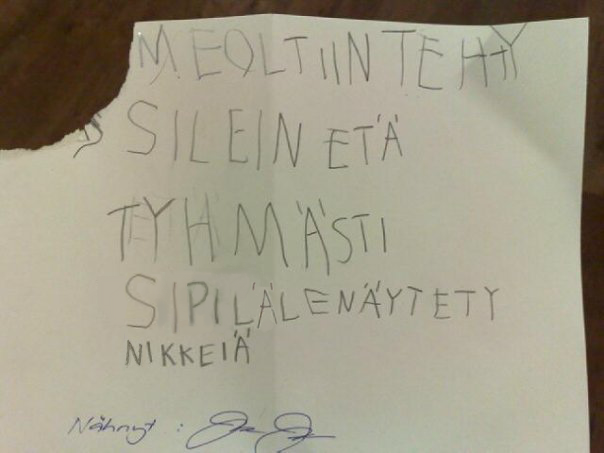 MEOLTIIN TEHTY
SILEIN ETÄ
TYHMÄSTI
SIPILÄLE NÄYTETY
NIKKEIÄ
Nähnyt :